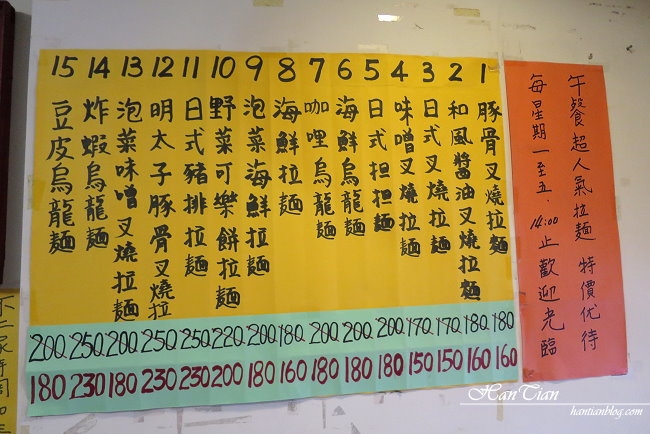 午餐超人氣拉麵 特價优待
每星期一至五．14:00止歡迎光臨
1 豚骨叉燒拉麵 180 160
2 和風醬油叉燒拉麵 180 160
3 日式叉燒拉麵 170 150
4 味噌叉燒拉麵 170 150
5 日式担担麵 200 180
6 海鮮烏龍麵 200 180
7 咖哩烏龍麵 200 180
8 海鮮拉麵 180 160
9 泡菜海鮮拉麵 200 180
10 野菜可樂餅拉麵 220 200
11 日式豬排拉麵 250 230
12 明太子豚骨叉燒拉 250 230
13 泡菜味噌叉燒拉麵 200 180
14 炸蝦烏龍麵 250 230
15 豆皮烏龍麵 200 180
HanTian
hantianblog.com